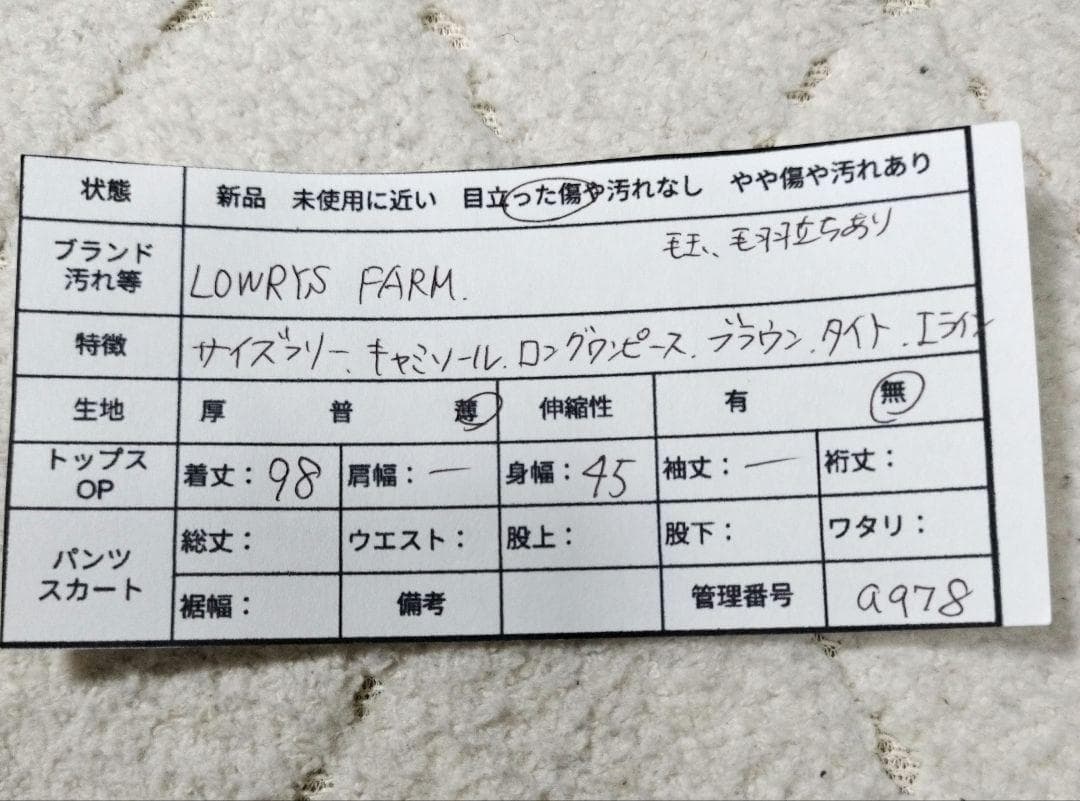 状態 新品 未使用に近い 目立った傷や汚れなし やや傷や汚れあり
ブランド 汚れ等 LOWRYS FARM. 毛玉、毛羽立ちあり
特徴 サイズフリー、キャミソール、ロングワンピース、ブラウン、タイト、Iライン
生地 厚 普 薄 伸縮性 有 無
トップス OP 着丈：98 肩幅：ー 身幅：45 袖丈：ー 裄丈：
パンツ スカート 総丈： ウエスト： 股上： 股下： ワタリ：
裾幅： 備考 管理番号 a978